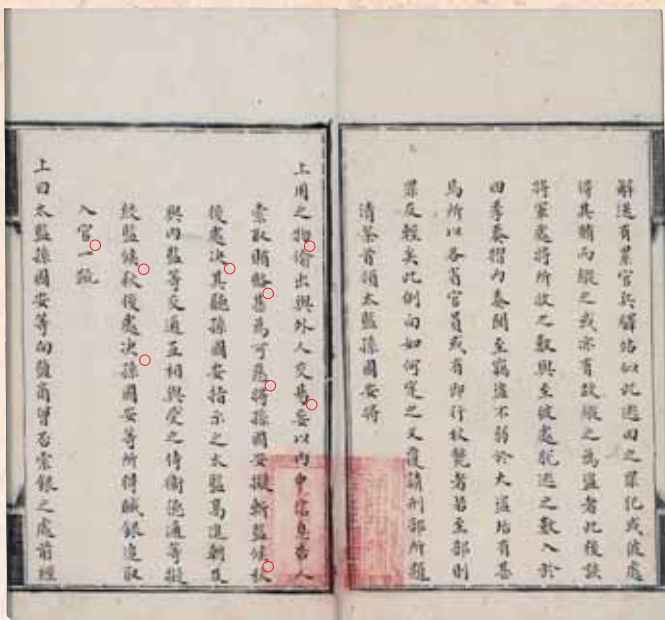 解送有累官兵驛站似此逃回之罪犯或彼處
得其賄而縱之或亦有故縱之為盜者此後該
將軍處將所收之數與至彼處脫逃之數入於
四季奏摺內奏聞至竊盜不弱於大盜殆有甚
焉所以各省官員或有即行杖斃者若至部則
罪反輕矣此例向如何定之又覆請刑部所題
清茶首領太監孫國安將
上用之物偷出與外人交易妄以內中信息告人
索取賄賂甚為可惡將孫國安擬斬監候秋
後處決其聽孫國安指示之太監葛進朝及
與內監等交通互相與受之侍衛德通等擬
絞監候秋後處決孫國安等所得贓銀追取
入官一疏
上曰太監孫國安等向鹽商曾否索銀之處前經